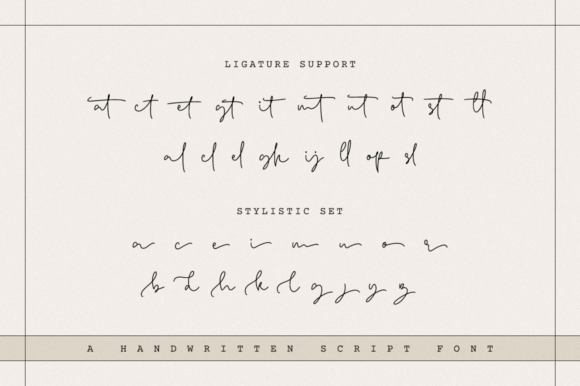 LIGATURE SUPPORT
at ct et gt it mt nt ot st tt
al cl el gh ij ll op sl
STYLISTIC SET
a c e i m n o r
b d h k l g j y z
A HANDWRITTEN SCRIPT FONT